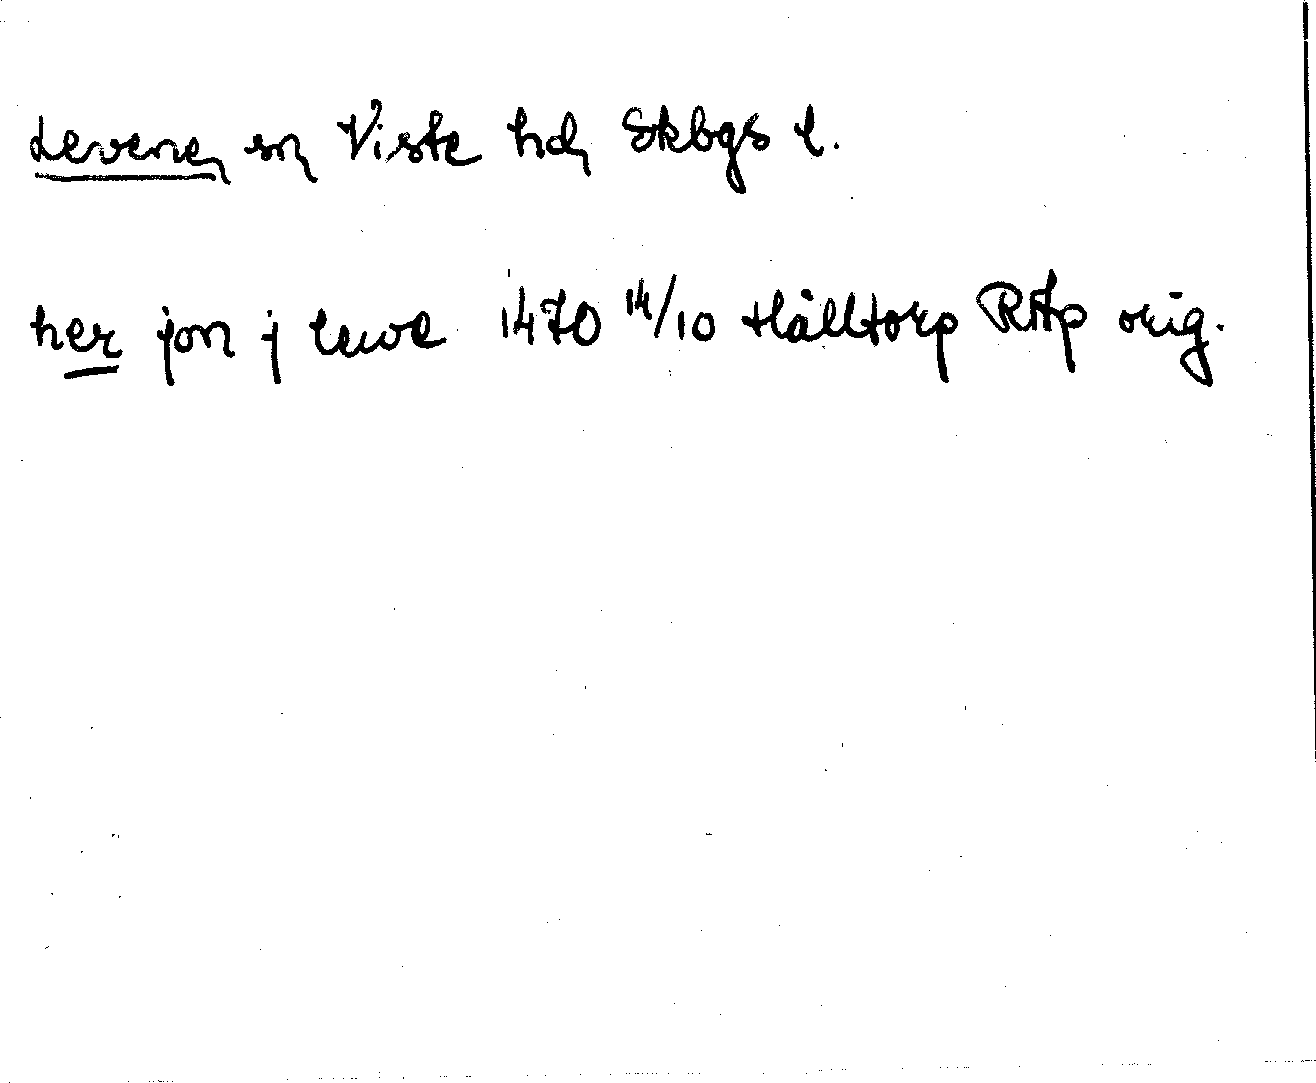 Levene, sn, Viste hd, Skbgs l.
her jon j lewe 1470 14/10 Hälltorp RAp orig.